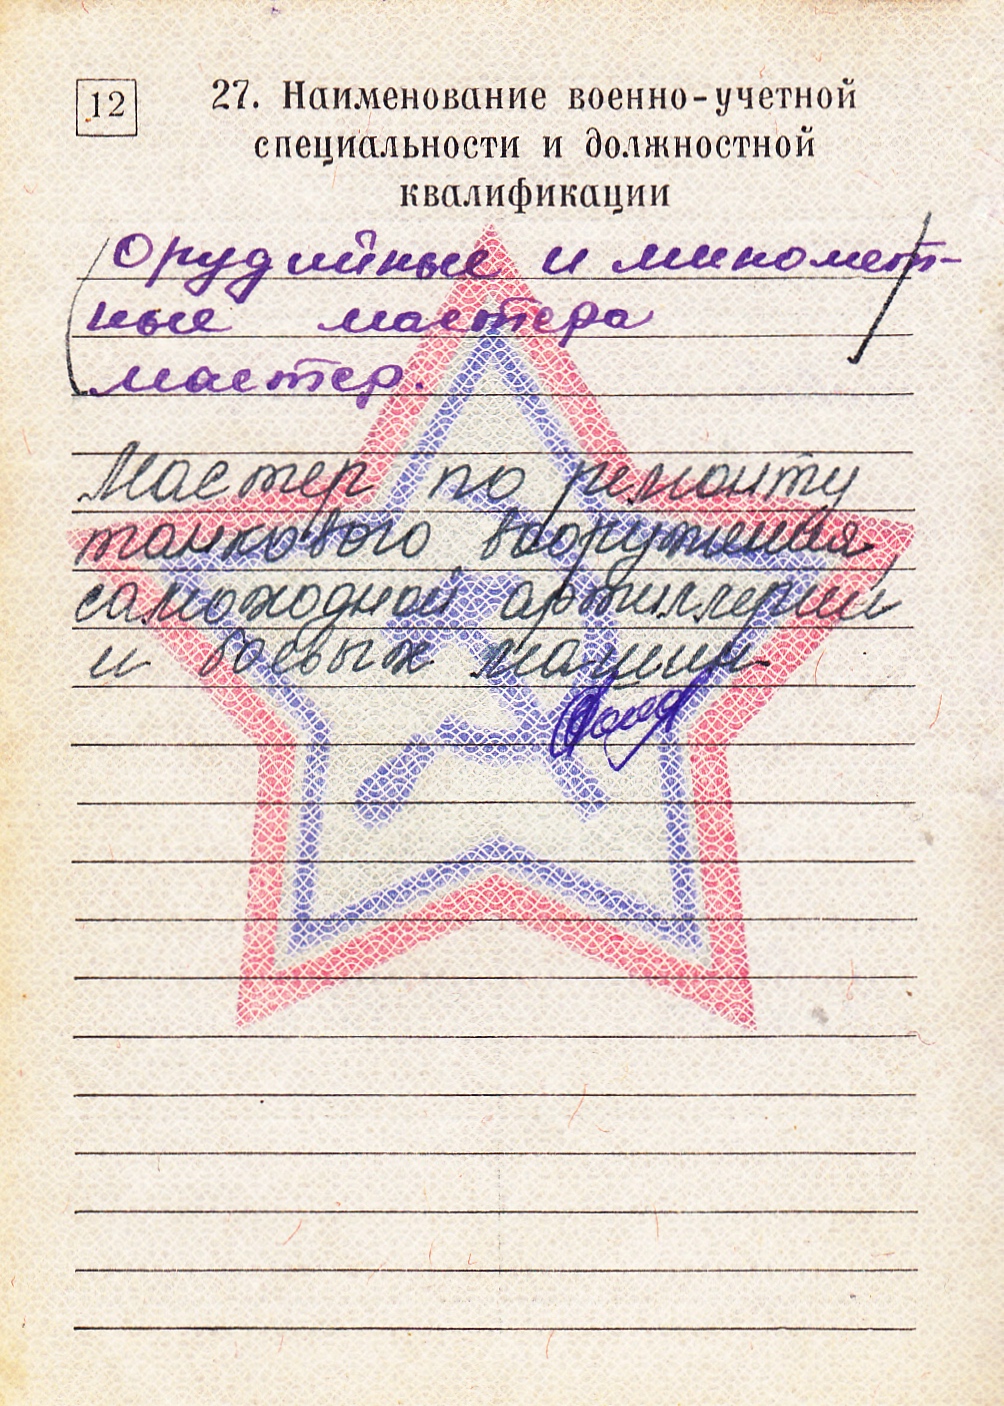 12
27. Наименование военно-учетной
специальности и должностной
квалификации
Орудийные и миномет-
ные мастера
мастер.
Мастер по ремонту
танкового вооружения
самоходной артиллерии
и боевых машин